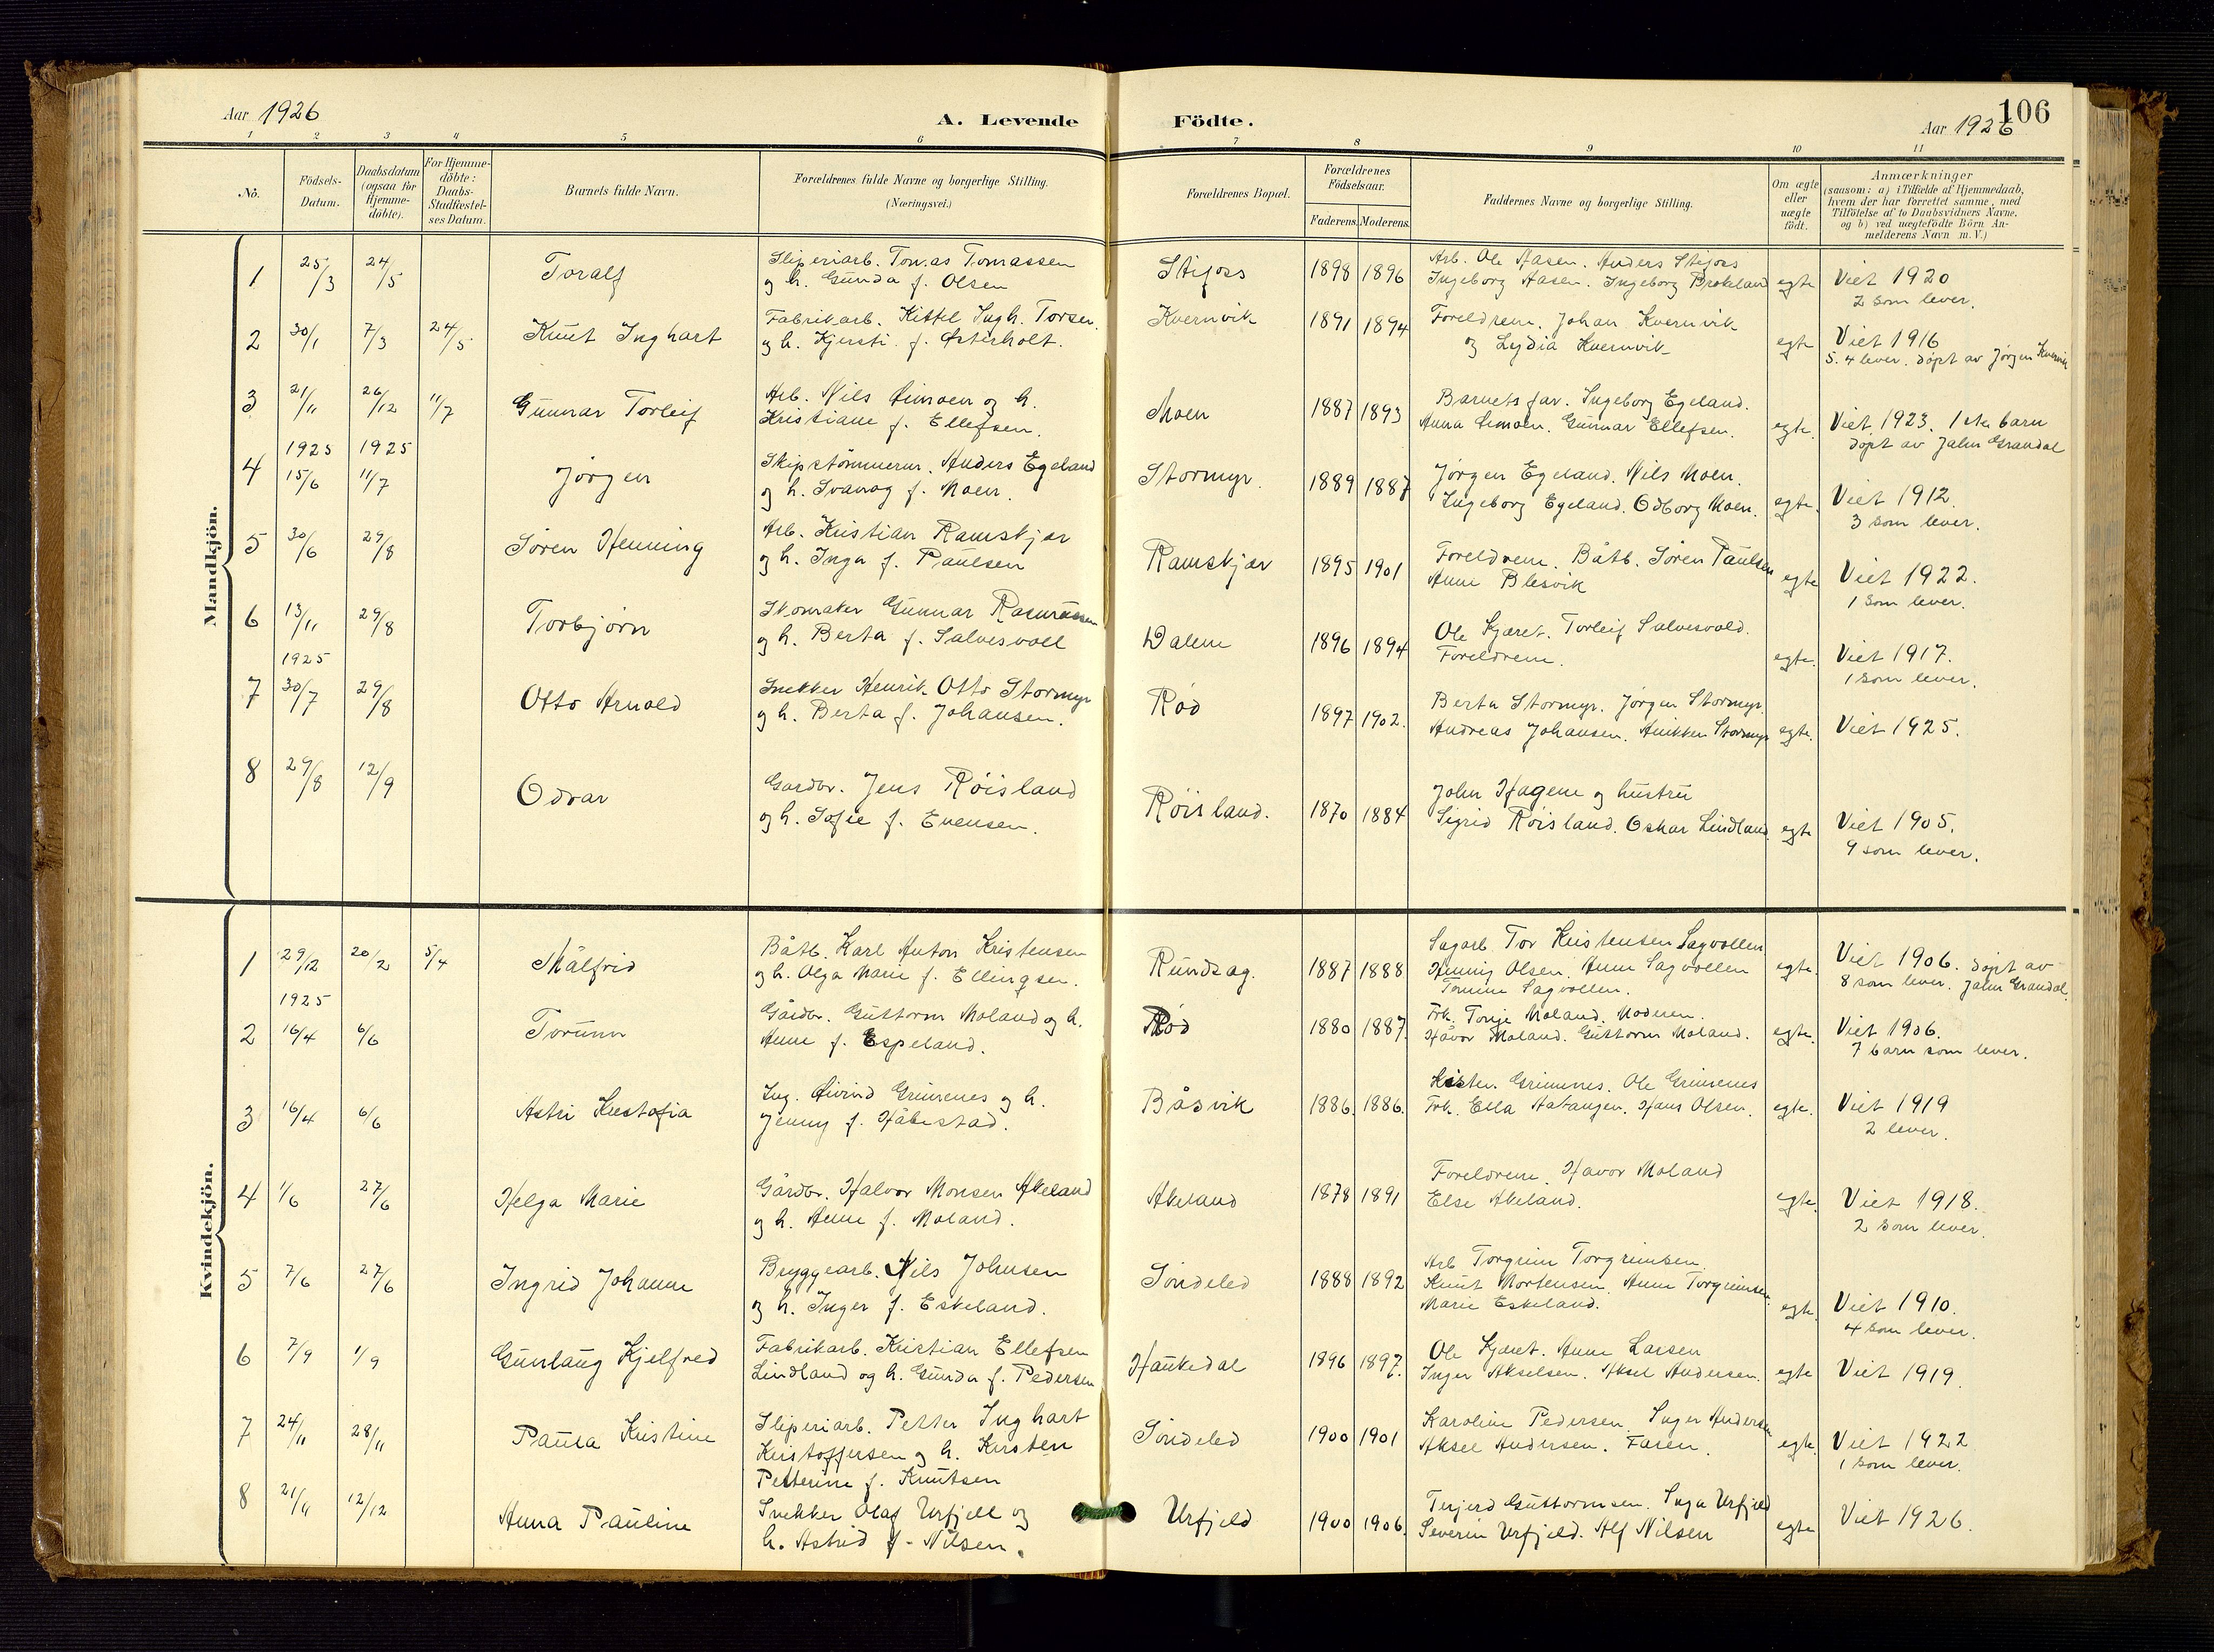 Aar 1926
A. Levende Födte.
Aar 1926
106
1 2 3 4 5 6 7 8 9 10 11
No.
Födsels-Datum.
Daabsdatum (ogsaa for Hjemme-döbte).
For Hjemme-döbte: Daabs-Stadfæstel-ses Datum.
Barnets fulde Navn.
Forældrenes fulde Navne og borgerlige Stilling.
(Næringsvei.)
Forældrenes Bopæl.
Forældrenes Födselsaar.
Faderens. Moderens.
Faddernes Navne og borgerlige Stilling.
Om ægte eller uægte födt.
Anmærkninger
(saasom: a) i Tilfælde af Hjemmedaab,
hvem der har forrettet samme, med
Tilföielse af to Daabsvidners Navne,
og b) ved uægtefödte Börn An-
melderens Navn m. V.)
Mandkjön.
1 25/3 24/5 Toralf
Sliperiarb. Tomas Tomassen
og h. Gunda f. Olsen
Stifoss 1898 1896
Arb. Ole Aasen. Anders Stifoss
Ingeborg Aasen. Ingeborg Brokeland
egte
Viet 1920
2 som lever.
2 30/1 7/3 24/5 Knut Inghart
Fabrikarb. Kittel Ingh. Torsen
og h. Kjersti f. Østerholt.
Kvernvik 1891 1894
Foreldrene. Johan Kvernvik
og Lydia Kvernvik
egte
Viet 1916
5. 4 lever. døpt av Jørgen Kvernvik
3 21/11 26/12 11/7 Gunnar Torleif
1925 1925
Arb. Nils Limoen og h.
Kristiane f. Ellefsen.
Moen 1887 1893
Barnets far. Ingeborg Egeland.
Anna Limoen. Gunnar Ellefsen.
egte.
Viet 1923. 1ste barn
døpt av Jahn Grandal
4 15/6 11/7 Jørgen
Skipstømmerm. Anders Egeland
og h. Svanaog f. Moen.
Stormyr. 1889 1887
Jørgen Egeland. Nils Moen.
Ingeborg Egeland. Odborg Moen.
egte.
Viet 1912
3 som lever.
5 30/6 29/8 Søren Henning
Arb. Kristian Ramskjær
og h. Inga f. Paulsen
Ramskjær 1895 1901
Foreldrene. Båtb. Søren Paulsen
Anne Blesvik
egte
Viet 1922.
1 som lever.
6 13/11 29/8 Torbjørn
1925
Skomaker Gunnar Rasmussen
og h. Berta f. Salvesvoll
Dalene 1896 1894
Ole Kjæret. Torleif Salvesvold.
Foreldrene.
egte.
Viet 1917.
1 som lever.
7 30/7 29/8 Otto Arnold
Snekker Henrik Otto Stormyr
og h. Berta f. Johansen.
Rød 1897 1902.
Berta Stormyr. Jørgen Stormyr.
Andreas Johansen. Anikken Stormyr
egte.
Viet 1925.
8 29/8 12/9 Odvar
Gardbr. Jens Røisland
og h. Sofie f. Evensen.
Røisland. 1870 1884
John Hagene og hustru
Sigrid Røisland. Oskar Lindland
egte
Viet 1905.
9 som lever.
Kvindekjön.
1 29/12 20/2 5/4 Målfrid
1925
Båtb. Karl Anton Kristensen
og h. Olga Marie f. Ellingsen.
Rundsag. 1887 1888
Sagarb. Tor Kristensen Sagvollen
Hennig Olsen. Anne Sagvollen
Tomine Sagvollen.
egte.
Viet 1906. døpt av
8 som lever. Jahn Grandal.
2 16/4 6/6 Torunn
Gårdbr. Guttorm Moland og h.
Anne f. Espeland.
Rød 1880 1887.
Frk. Tonje Moland. Moderen.
Håvor Moland. Guttorm Moland.
egte.
Viet 1906.
7 barn som lever.
3 16/4 6/6 Astri Kristofia
Ing. Øivind Grimenes og h.
Jenny f. Håbestad.
Båsvik 1886. 1886.
Kister. Grimnes. Ole Grimenes
Frk. Ella Aatangen. Hans Olsen.
egte.
Viet 1919
2 lever.
4 1/6 27/6 Helga Marie
Gårdbr. Halvor Monsen Akeland
og h. Anne f. Moland.
Akeland 1878 1891
Foreldrene. Havor Moland
Else Akeland.
egte.
Viet 1918.
2 som lever.
5 7/6 27/6 Ingrid Johanne
Bryggearb. Nils Johnsen
og h. Inger f. Eskeland.
Søndeled 1888 1892
Arb Torgrim Torgrimsen.
Knut Mortensen. Anne Torgrimsen
Marie Eskeland.
egte
Viet 1910.
4 som lever.
6 7/9 1/9 Gunlaug Kjelfred
Fabrikarb. Kristian Ellefsen
Lindland og h. Gunda f. Pedersen
Haukedal 1896 1897.
Ole Kjæret. Anne Larsen
Inger Akselsen. Aksel Andersen.
egte
Viet 1919.
7 24/11 28/11 Paula Kristine
Sliperiarb. Petter Inghart
Kristoffersen og h. Kirsten
Petterine f. Knutsen
Søndeled 1900 1901
Karoline Pedersen. Inger Andersen
Aksel Andersen. Faren.
egte.
Viet 1922
1 som lever.
8 21/11 12/12 Anna Pauline
Snekker Olaf Urfjell og
h. Astrid f. Nilsen.
Urfjeld 1900 1906.
Terjerd Guttormsen. Inga Urfjeld
Severin Urfjeld. Alf Nilsen
egte
Viet 1926.